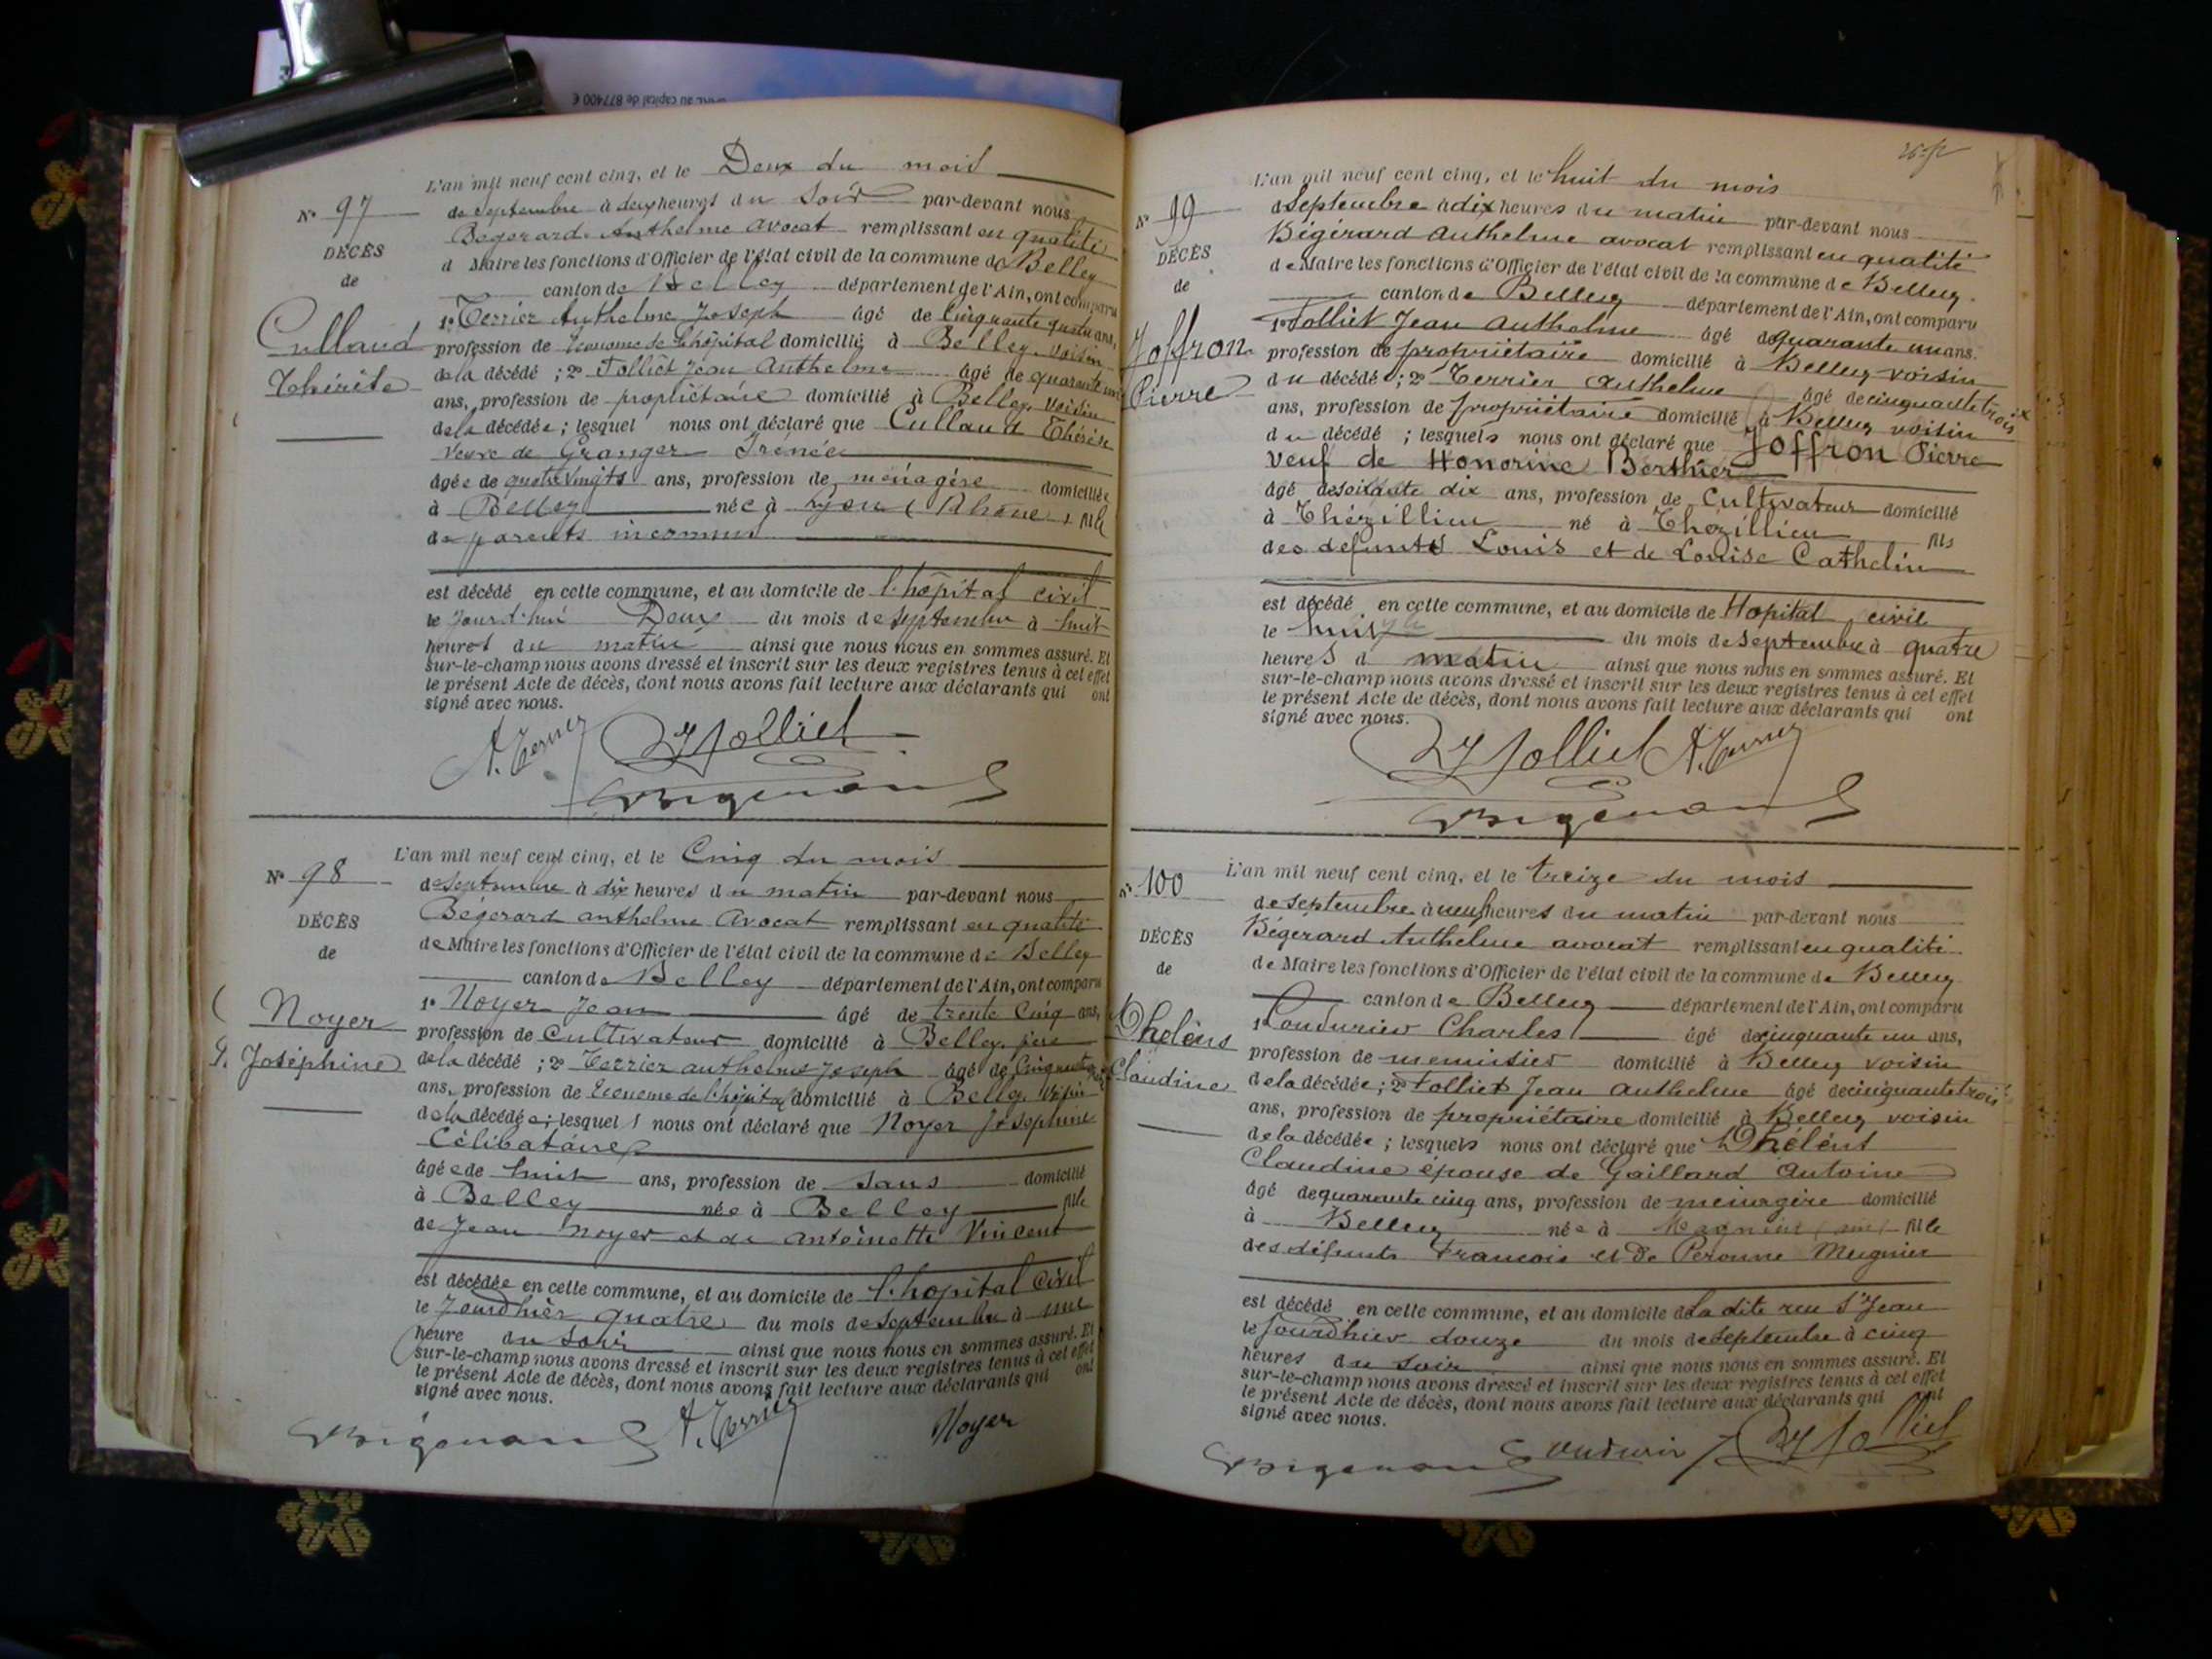 SARL au capital de 877400 €
L'an mil neuf cent cinq, et le Deux du mois
N° 97
de septembre à deux heures du Soir par-devant nous
Bégerard Anthelme avocat remplissant en qualité
DÉCÈS
de Maire les fonctions d'Officier de l'état civil de la commune de Belley
de
canton de Belley département de l'Ain, ont comparu
1° Terrier Anthelme Joseph âgé de Cinquante quatre ans,
Cullaud
profession de Econome de l'hôpital domicilié à Belley, voisin
Thérèse
de la décédé ; 2° Folliet Jean Anthelme âgé de quarante un
ans, profession de propriétaire domicilié à Belley, voisin
de la décédée ; lesquel nous ont déclaré que Cullaud Thérèse
veuve de Granger Irénée
âgée de quatre vingts ans, profession de ménagère domiciliée
à Belley née à Lyon (Rhône) fille
de parents inconnus
est décédé en cette commune, et au domicile de l'hôpital civil
le Jourd'hui Deux du mois de septembre à huit
heures du matin ainsi que nous nous en sommes assuré. Et
sur-le-champ nous avons dressé et inscrit sur les deux registres tenus à cet effet
le présent Acte de décès, dont nous avons fait lecture aux déclarants qui ont
signé avec nous.
A. Terrier Folliet
Bégerard
L'an mil neuf cent cinq, et le Cinq du mois
N° 98
de septembre à dix heures du matin par-devant nous
Bégerard anthelme Avocat remplissant en qualité
DÉCÈS
de Maire les fonctions d'Officier de l'état civil de la commune de Belley
de
canton de Belley département de l'Ain, ont comparu
1° Noyer Jean âgé de trente Cinq ans,
Noyer
profession de Cultivateur domicilié à Belley, père
Joséphine
de la décédé ; 2° Terrier anthelme Joseph âgé de Cinquante
ans, profession de Econome de l'hôpital domicilié à Belley, voisin
de la décédée ; lesquels nous ont déclaré que Noyer Joséphine
Célibataire
âgée de huit ans, profession de sans domicilié
à Belley née à Belley fille
de Jean Noyer et de Antoinette Vincent
est décédée en cette commune, et au domicile de l'hopital civil
le Jourdhier quatre du mois de septembre à une
heure du soir ainsi que nous nous en sommes assuré. Et
sur-le-champ nous avons dressé et inscrit sur les deux registres tenus à cet effet
le présent Acte de décès, dont nous avons fait lecture aux déclarants qui ont
signé avec nous.
Bégerard A. Terrier Noyer
L'an mil neuf cent cinq, et le huit du mois
N° 99
de Septembre à dix heures du matin par-devant nous
Bégérard Anthelme avocat remplissant en qualité
DÉCÈS
de Maire les fonctions d'Officier de l'état civil de la commune de Belley
de
canton de Belley département de l'Ain, ont comparu
1° Folliet Jean Anthelme âgé de quarante un ans.
Joffron
profession de propriétaire domicilié à Belley voisin
Pierre
du décédé ; 2° Terrier Anthelme âgé de cinquante trois
ans, profession de propriétaire domicilié à Belley voisin
du décédé ; lesquels nous ont déclaré que Joffron Pierre
veuf de Honorine Berthier
âgé de soixante dix ans, profession de Cultivateur domicilié
à Thézillieu né à Thézillieu fils
des defunts Louis et de Louise Cathelin
est décédé en cette commune, et au domicile de Hopital civil
le huit du mois de septembre à quatre
heures d matin ainsi que nous nous en sommes assuré. Et
sur-le-champ nous avons dressé et inscrit sur les deux registres tenus à cet effet
le présent Acte de décès, dont nous avons fait lecture aux déclarants qui ont
signé avec nous.
Folliet A. Terrier
Bégerard
L'an mil neuf cent cinq, et le treize du mois
N° 100
de septembre à neuf heures du matin par-devant nous
Bégérard Anthelme avocat remplissant en qualité
DÉCÈS
de Maire les fonctions d'Officier de l'état civil de la commune de Belley
de
canton de Belley département de l'Ain, ont comparu
1° Coudurier Charles âgé de cinquante un ans,
Dhélens
profession de menuisier domicilié à Belley voisin
Claudine
de la décédée ; 2° Folliet Jean Anthelme âgé de cinquante trois
ans, profession de propriétaire domicilié à Belley voisin
de la décédée ; lesquels nous ont déclaré que Dhélens
Claudine épouse de Gaillard Antoine
âgé de quarante cinq ans, profession de ménagère domicilié
à Belley née à fille
des défunts Francois et de Peronne Meignier
est décédé en cette commune, et au domicile de la dite rue St Jean
le Jourdhier douze du mois de septembre à cinq
heures du soir ainsi que nous nous en sommes assuré. Et
sur-le-champ nous avons dressé et inscrit sur les deux registres tenus à cet effet
le présent Acte de décès, dont nous avons fait lecture aux déclarants qui ont
signé avec nous.
Bégerard Coudurier Folliet